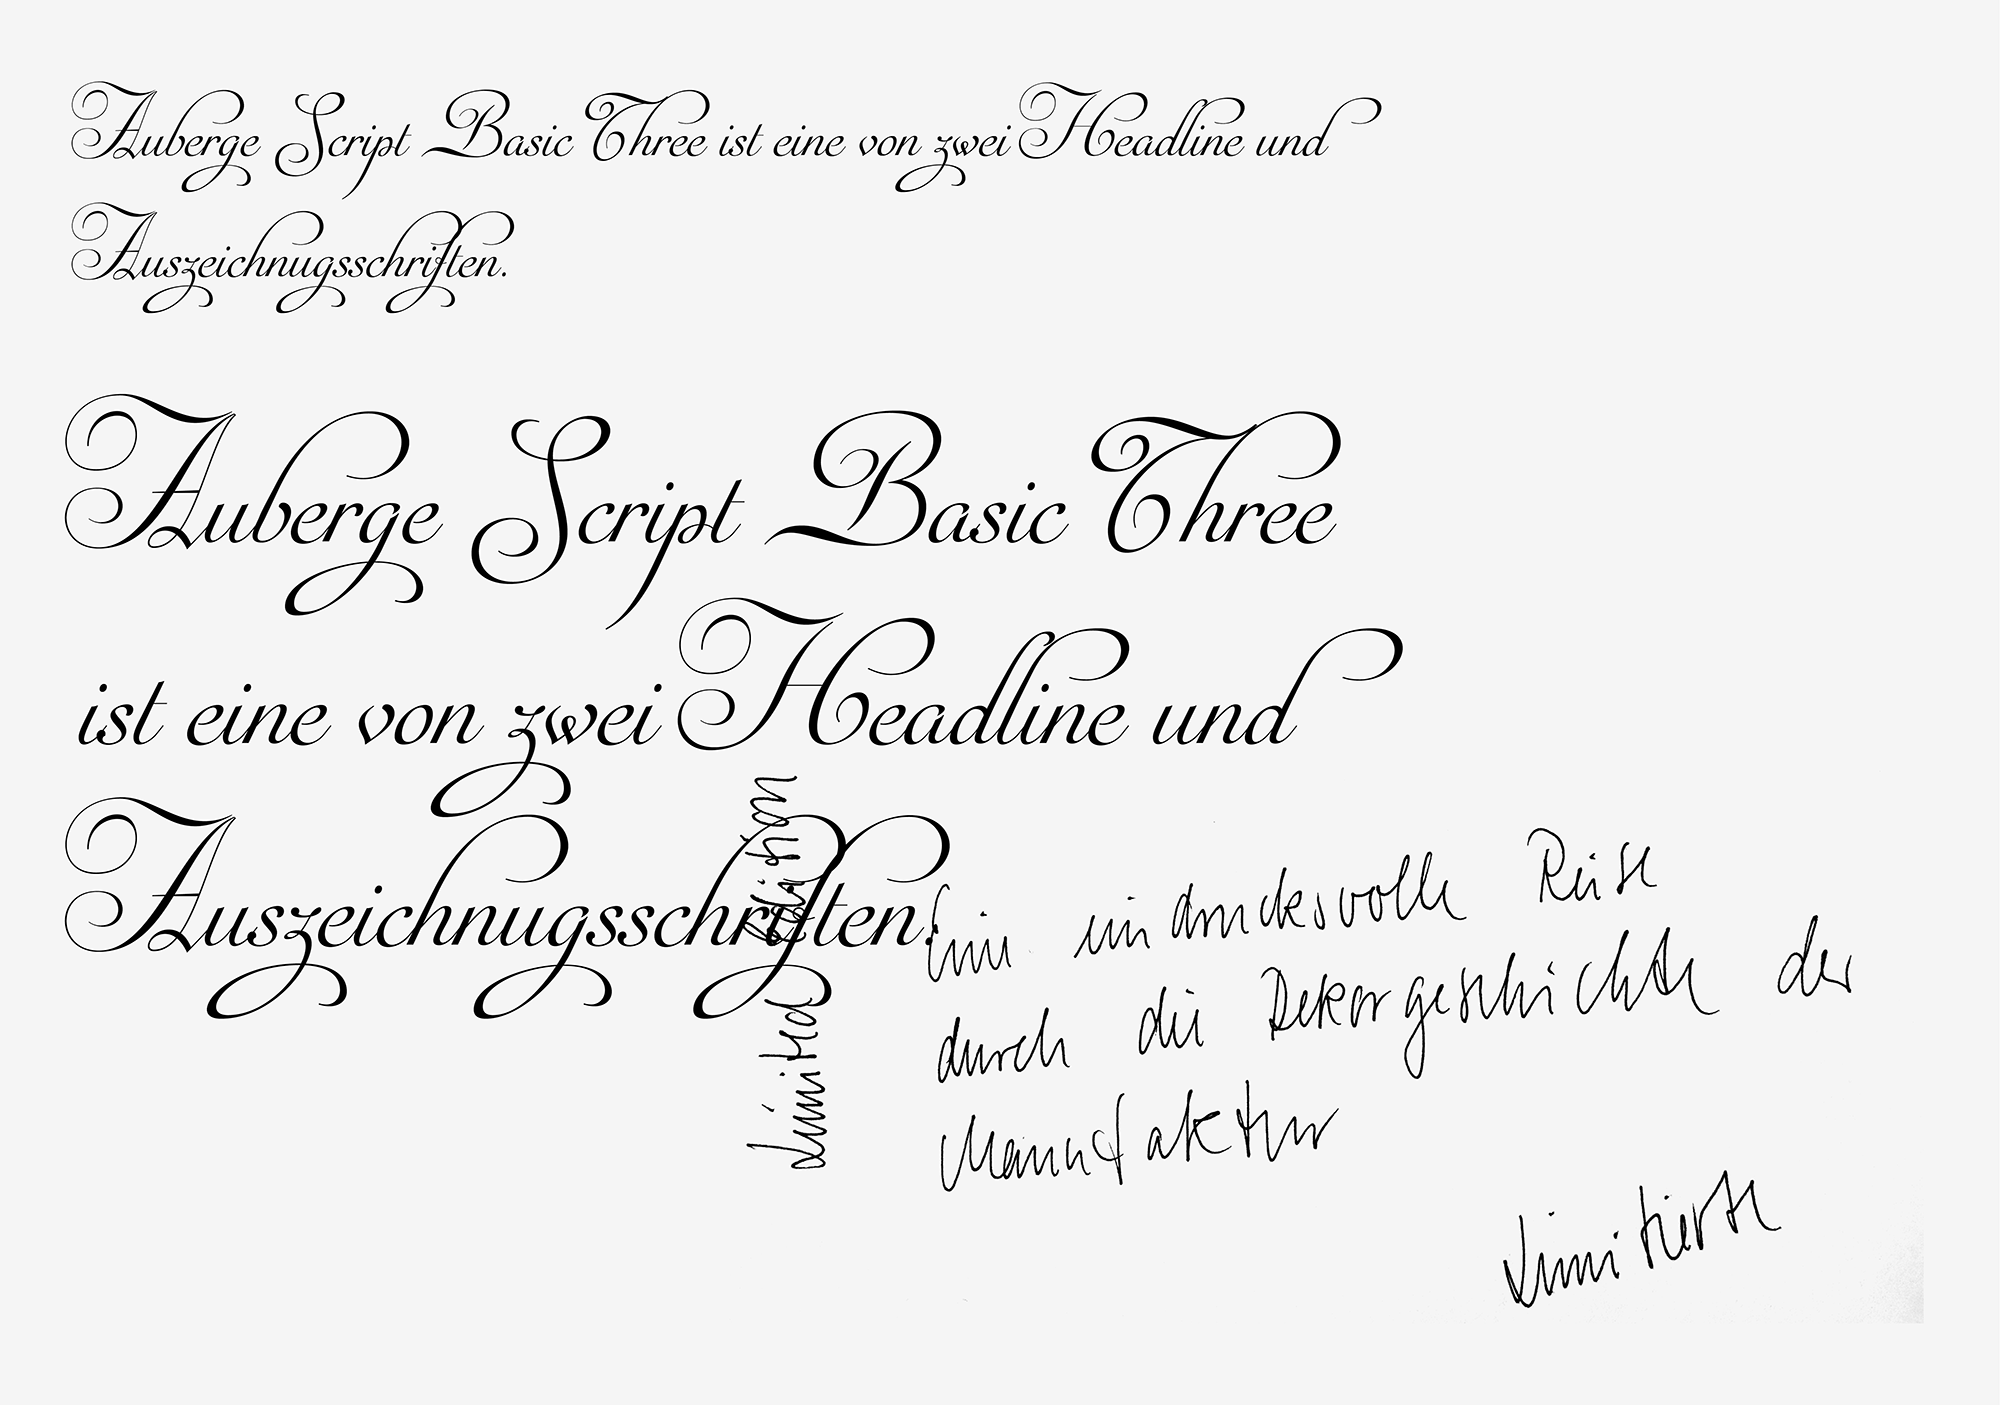 Auberge Script Basic Three ist eine von zwei Headline und
Auszeichnugsschriften.
Auberge Script Basic Three
ist eine von zwei Headline und
Auszeichnugsschriften.
Limited edition
Eine eindrucksvolle Reise
durch die Dekorgeschichte der
Manufaktur
Limitierte